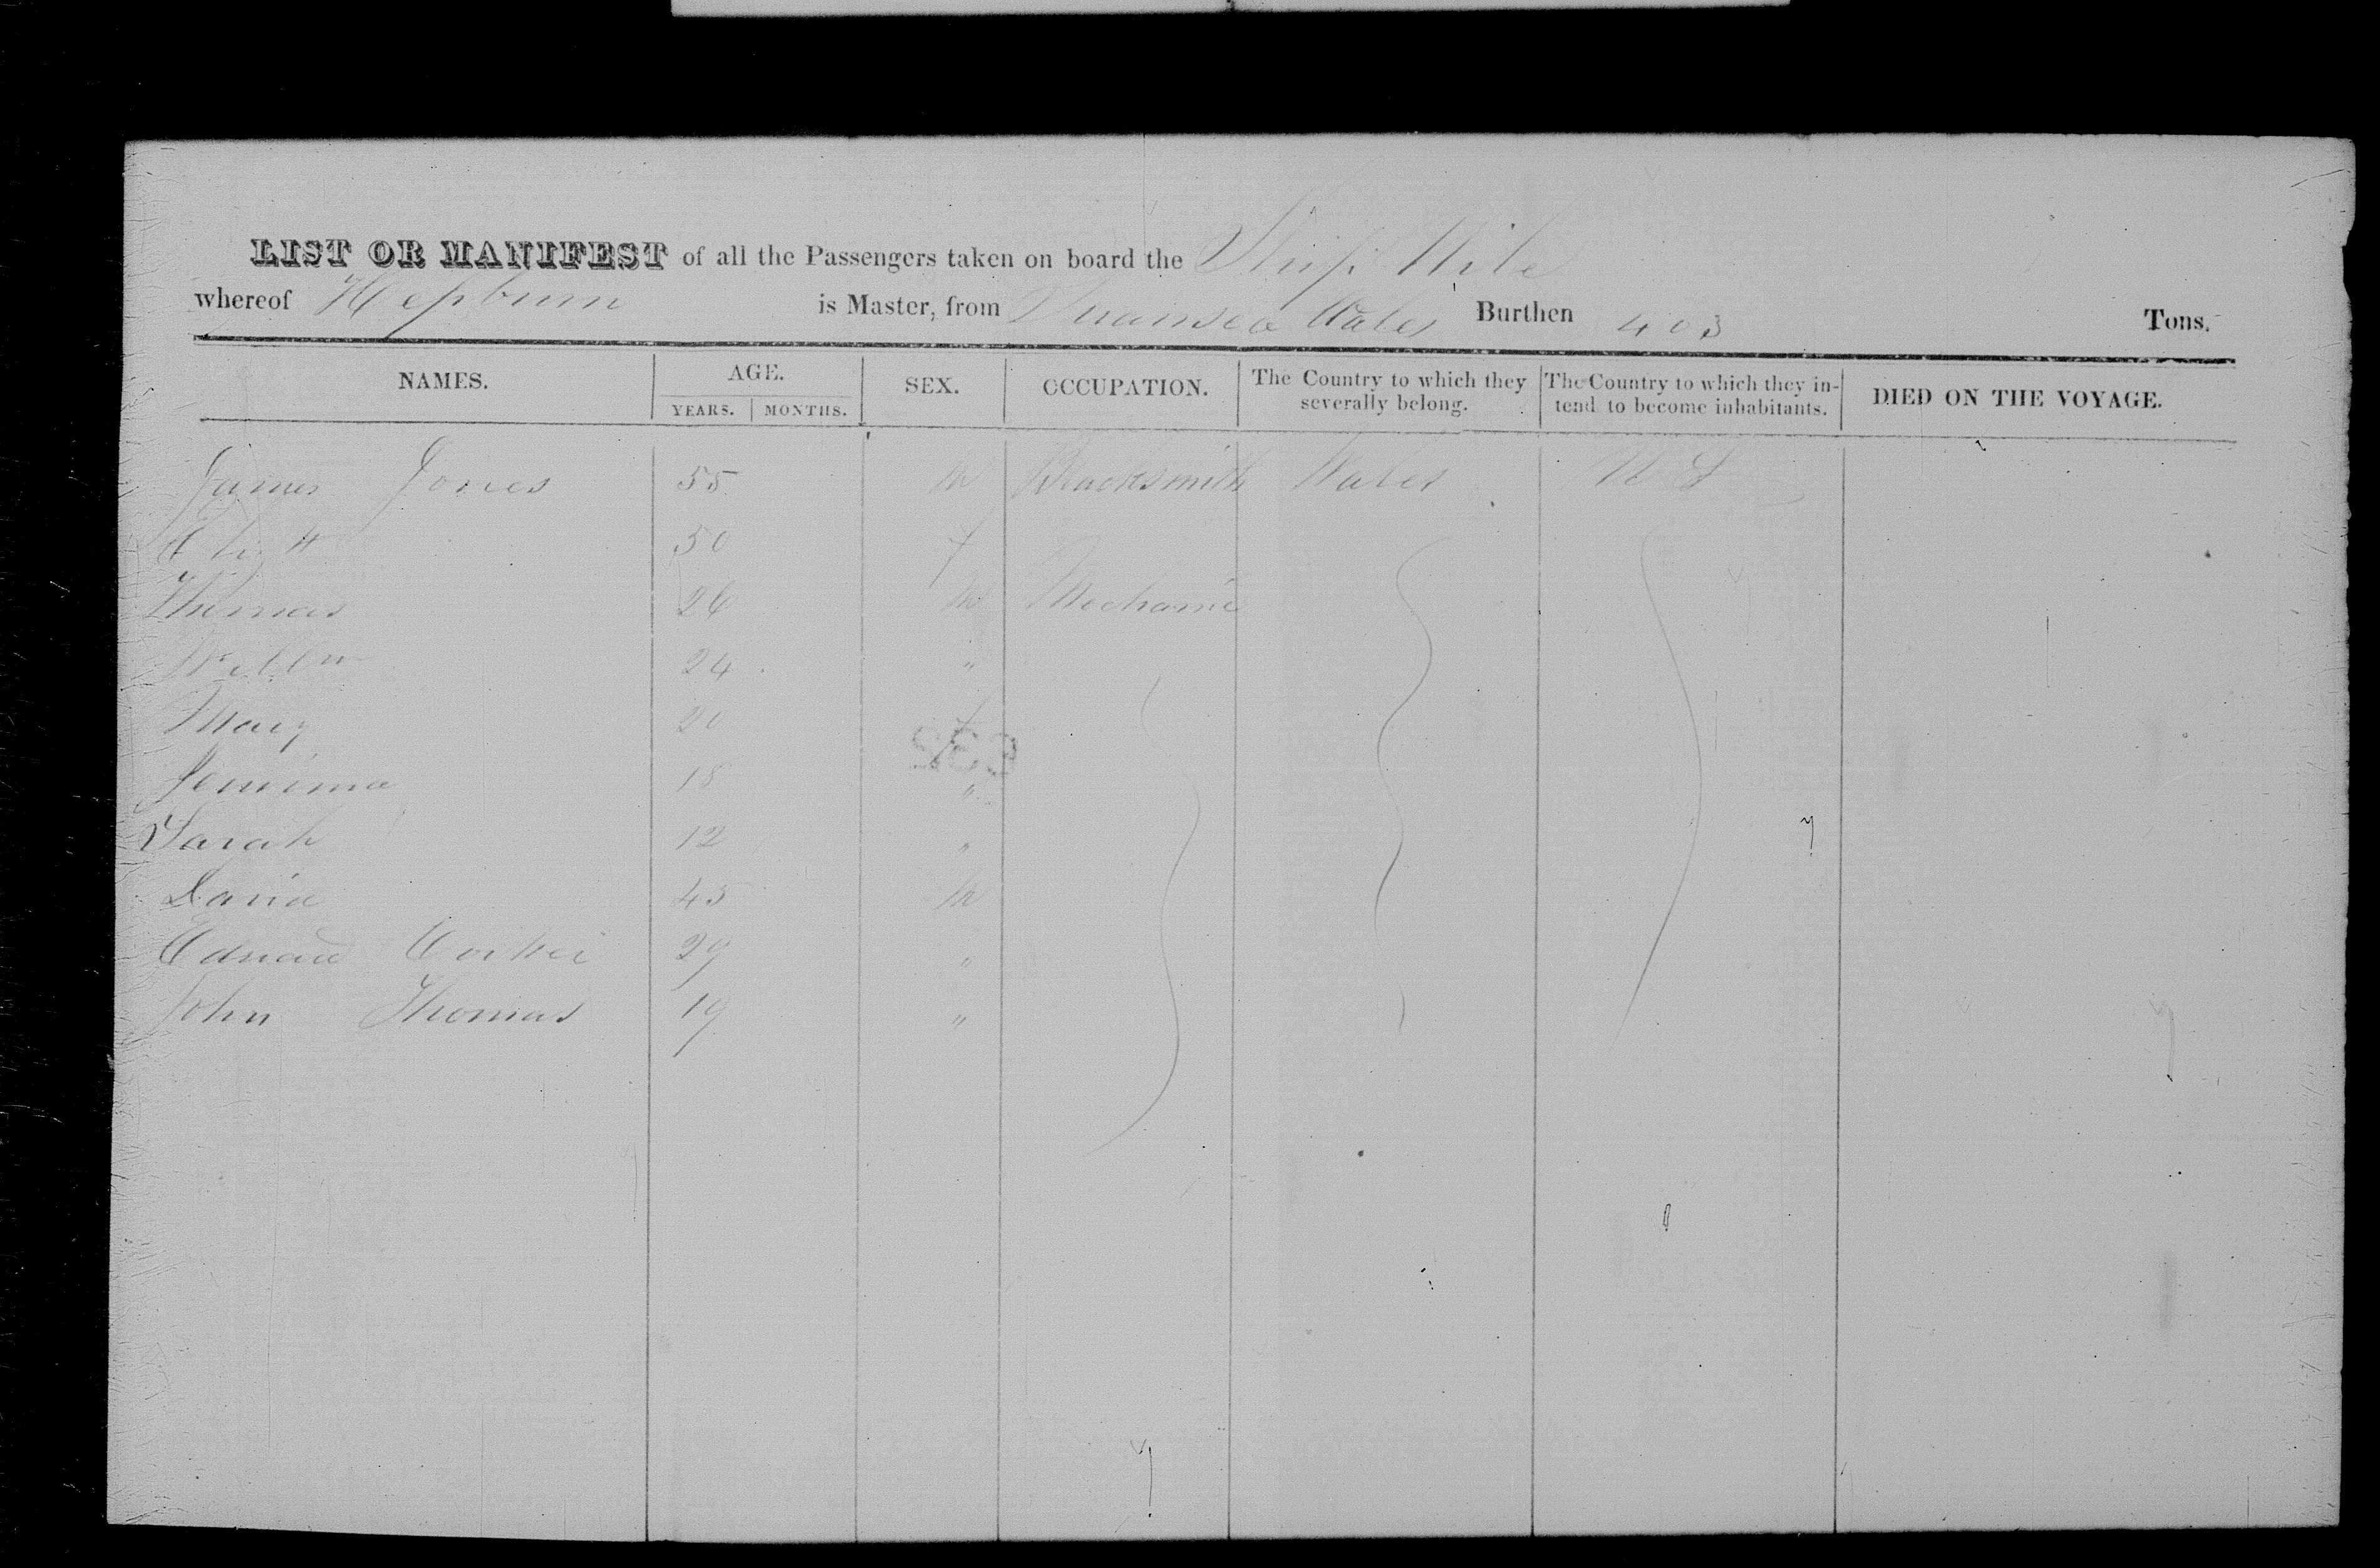 LIST OR MANIFEST of all the Passengers taken on board the Ship Nile
whereof Hepburn is Master, from Swansea Wales Burthen 403 Tons.
NAMES. AGE. SEX. OCCUPATION. The Country to which they severally belong. The Country to which they intend to become inhabitants. DIED ON THE VOYAGE.
YEARS. MONTHS.
James Jones 55 m Blacksmith Wales U S
50 f
Thomas 26 m Mechanic
Willm 24 "
Mary 20 f
632
Jemima 18 "
Sarah 12 "
David 45 m
Edward 29 "
John Thomas 19 "